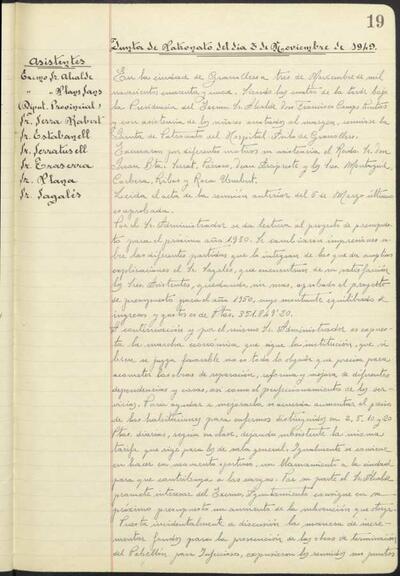 19
Junta de Patronato del día 3 de Noviembre de 1949.
Asistentes
Excmo Sr. Alcalde
" " Plans Jans
(Diput. Provincial)
Sr. Serra Rabert
Sr. Estabanell
Sr. Serratusell
Sr. Traserra
Sr. Plana
Sr. Sagalés
En la ciudad de Granollers a tres de Noviembre de mil
novecientos cuarenta y nueve. Siendo las cuatro de la tarde bajo
la Presidencia del Excmo Sr. Alcalde Don Francisco
y con asistencia de los señores anotados al margen, reunióse la
Junta de Patronato del Hospital Asilo de Granollers.
Excusaron por diferentes motivos su asistencia el Rdo. Sr. Don
Juan Bta. y los Sres. Montagud,
Corbera, Ribas y Roca Umbert.
Leída el acta de la reunión anterior del 5 de Marzo último
es aprobada.
Por el Sr. Administrador se da lectura al proyecto de presupues-
to para el próximo año 1950. Se cambiaron impresiones so-
bre las diferentes partidas que lo integran de las que da amplias
explicaciones el Sr. Sagalés, que encuentran de su satisfacción
los Sres. Asistentes, quedando, sin mas, aprobado el proyecto
de presupuesto para el año 1950, cuyo montante equilibrado de
ingresos y gastos es de Ptas. 351.849'20.
A continuación y por el mismo Sr. Administrador es expues-
ta la marcha económica que sigue la institución, que si
bien se juzga favorable no es todo lo objeto que precisa para
acometer las obras de reparación, reforma y mejora de diferentes
dependencias y casas, así como el perfeccionamiento de los ser-
vicios. Para ayudar a mejorarla se acuerda aumentar el precio
de las habitaciones para enfermos distinguidos en 2, 5, 10 y 20
Ptas. diarias, según su clase, dejando subsistente la misma
tarifa que rige para los de sala general. Igualmente se conviene
en hacer en momento oportuno, un llamamiento a la ciudad
para que contribuya a las cargas. Por su parte el Sr. Alcalde
promete interesar del Excmo. Ayuntamiento consigne en su
próximo presupuesto un aumento de la subvención que otorga.
Puesta incidentalmente a discusión la manera de incre-
mentar fondos para la prosecución de las obras de terminación
del Pabellón para Infecciosos, expusieron los reunidos sus puntos